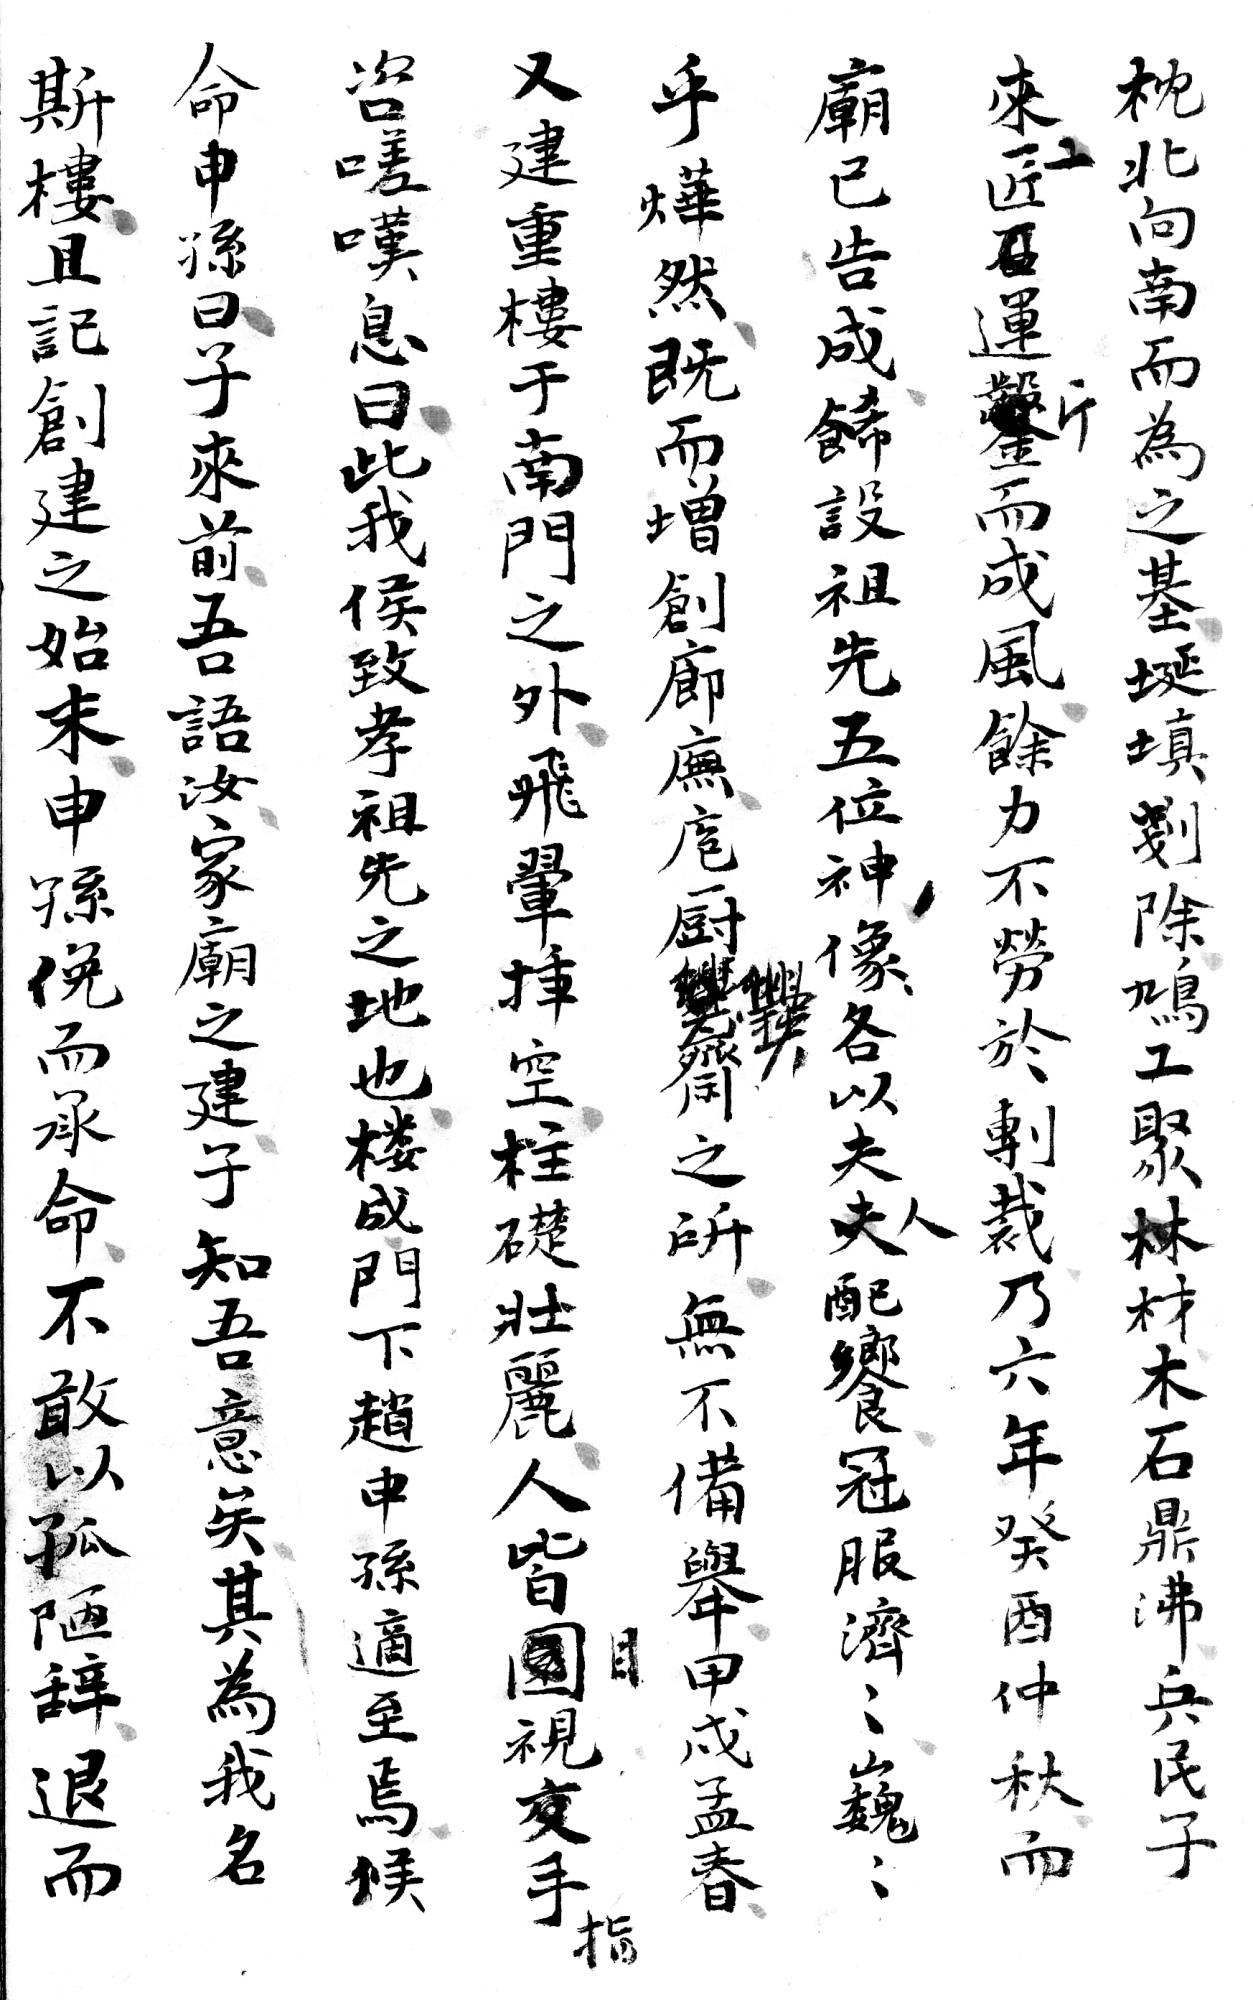 枕北向南而為之基埏填剗除鳩工聚林材木石鼎沸兵民子
來工匠石運斤而成風餘力不勞於剸裁乃六年癸酉仲秋而
廟已告成餙設祖先五位神像各以夫夫人配饗冠服濟〻巍〻
乎燁然既而增創廊廡庖厨爨齋之所無不備舉甲戌孟春
又建重樓于南門之外飛翬挿空柱礎壯麗人皆目視交手指
咨嗟嘆息曰此我侯致孝祖先之地也樓成門下趙申孫適至焉候
命申孫曰子來前吾語汝家廟之建子知吾意矣其為我名
斯樓且記創建之始末申孫俛而承命不敢以孤陋辞退而